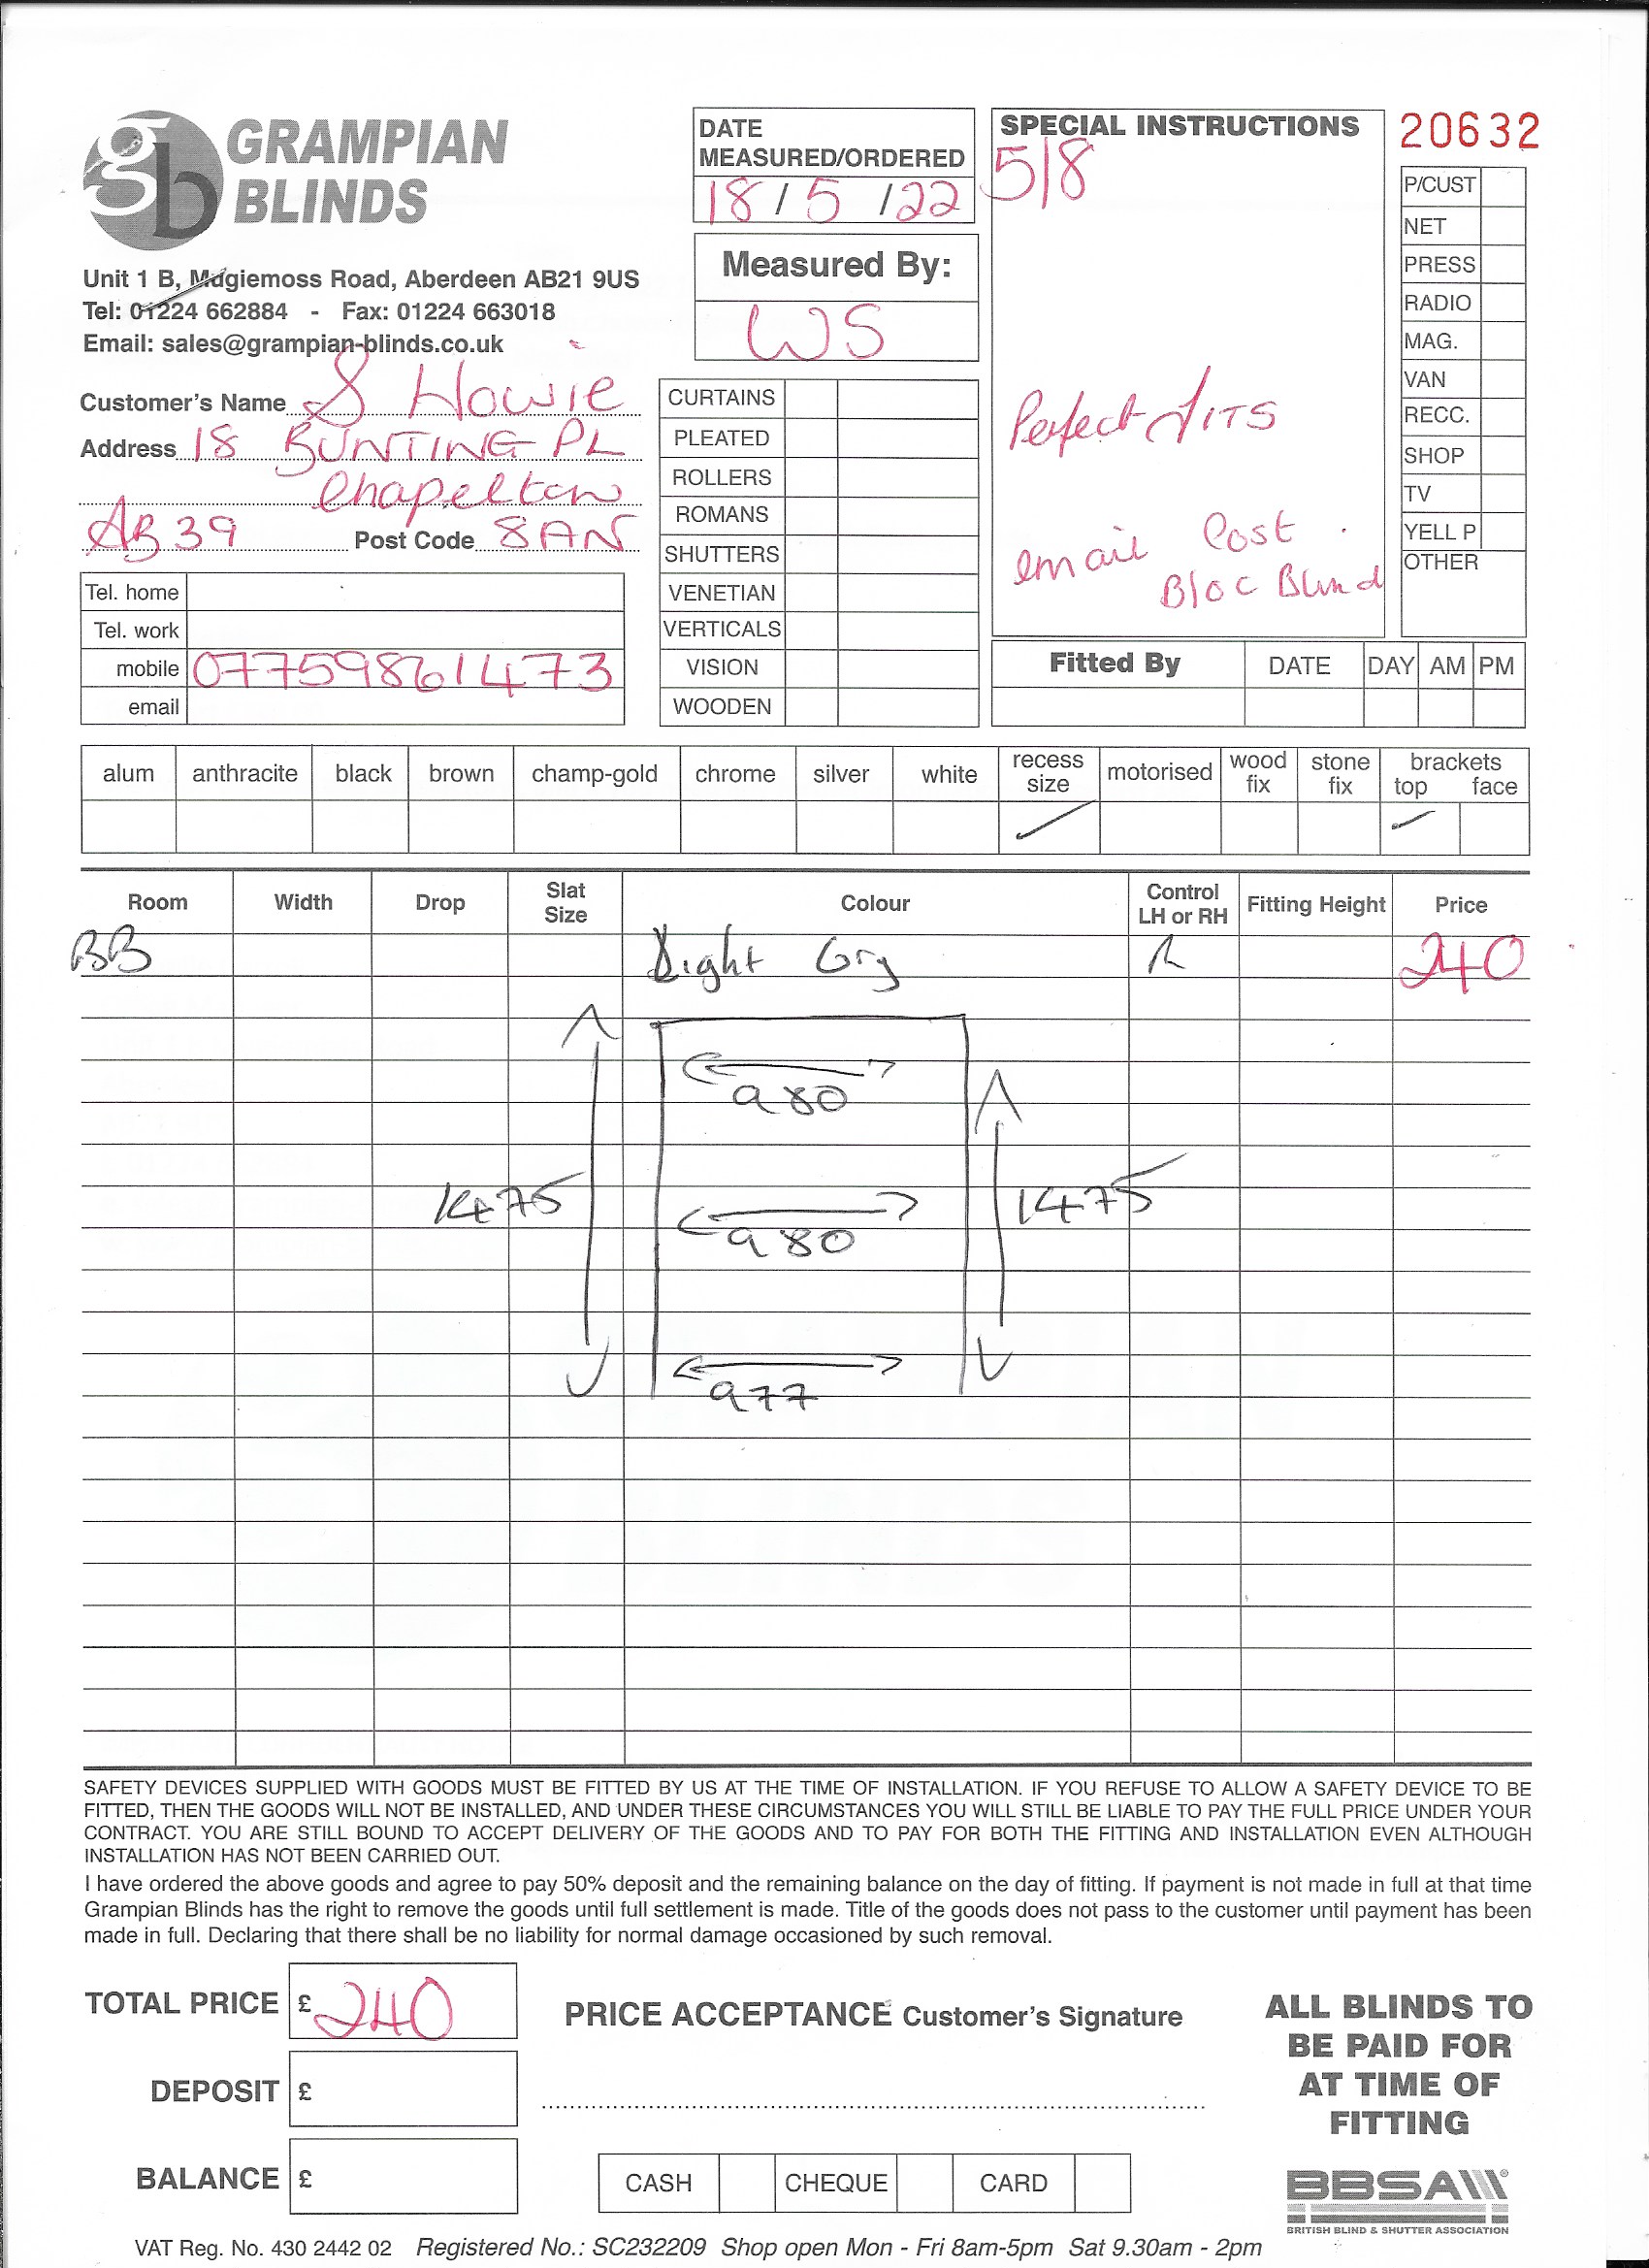 gb GRAMPIAN
BLINDS
Unit 1 B, Mugiemoss Road, Aberdeen AB21 9US
Tel: 01224 662884 - Fax: 01224 663018
Email: sales@grampian-blinds.co.uk
Customer's Name S Howie
Address 18 BUNTING PL
Chapelton
AB39 Post Code 8AN
Tel. home
Tel. work
mobile 07759861473
email
DATE
MEASURED/ORDERED
18/5/22
Measured By:
WS
CURTAINS
PLEATED
ROLLERS
ROMANS
SHUTTERS
VENETIAN
VERTICALS
VISION
WOODEN
SPECIAL INSTRUCTIONS
5/8
Perfect FITS
email Cost
Bloc Blind
20632
P/CUST
NET
PRESS
RADIO
MAG.
VAN
RECC.
SHOP
TV
YELL P
OTHER
Fitted By DATE DAY AM PM
alum anthracite black brown champ-gold chrome silver white recess size motorised wood fix stone fix brackets top face
Room Width Drop Slat Size Colour Control LH or RH Fitting Height Price
BB Light Gry R 240
980
1475 980 1475
977
SAFETY DEVICES SUPPLIED WITH GOODS MUST BE FITTED BY US AT THE TIME OF INSTALLATION. IF YOU REFUSE TO ALLOW A SAFETY DEVICE TO BE
FITTED, THEN THE GOODS WILL NOT BE INSTALLED, AND UNDER THESE CIRCUMSTANCES YOU WILL STILL BE LIABLE TO PAY THE FULL PRICE UNDER YOUR
CONTRACT. YOU ARE STILL BOUND TO ACCEPT DELIVERY OF THE GOODS AND TO PAY FOR BOTH THE FITTING AND INSTALLATION EVEN ALTHOUGH
INSTALLATION HAS NOT BEEN CARRIED OUT.
I have ordered the above goods and agree to pay 50% deposit and the remaining balance on the day of fitting. If payment is not made in full at that time
Grampian Blinds has the right to remove the goods until full settlement is made. Title of the goods does not pass to the customer until payment has been
made in full. Declaring that there shall be no liability for normal damage occasioned by such removal.
TOTAL PRICE £ 240
DEPOSIT £
BALANCE £
PRICE ACCEPTANCE Customer's Signature
CASH CHEQUE CARD
ALL BLINDS TO
BE PAID FOR
AT TIME OF
FITTING
BBSA
BRITISH BLIND & SHUTTER ASSOCIATION
VAT Reg. No. 430 2442 02 Registered No.: SC232209 Shop open Mon - Fri 8am-5pm Sat 9.30am - 2pm